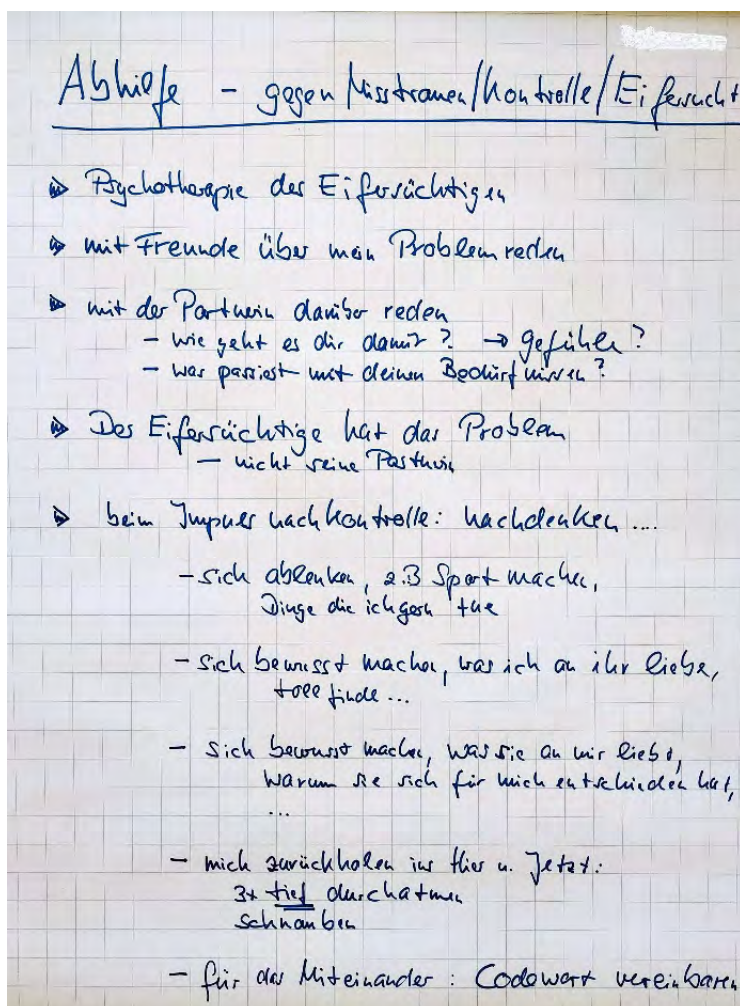 Abhilfe - gegen Misstrauen/Kontrolle/Eifersucht
Psychotherapie des Eifersüchtigen
mit Freunde über mein Problem reden
mit der Partnerin darüber reden
- wie geht es dir damit? → Gefühle?
- was passiert mit deinen Bedürfnissen?
Der Eifersüchtige hat das Problem
- nicht seine Partnerin
beim Impuls nach Kontrolle: nachdenken ....
- sich ablenken, z.B Sport machen,
Dinge die ich gern tue
- sich bewusst machen, was ich an ihr liebe,
toll finde ...
- sich bewusst machen, was sie an mir liebt,
warum sie sich für mich entschieden hat,
...
- mich zurückholen ins Hier u. Jetzt:
3x tief durchatmen
schnauben
- für das Miteinander: Codewort vereinbaren